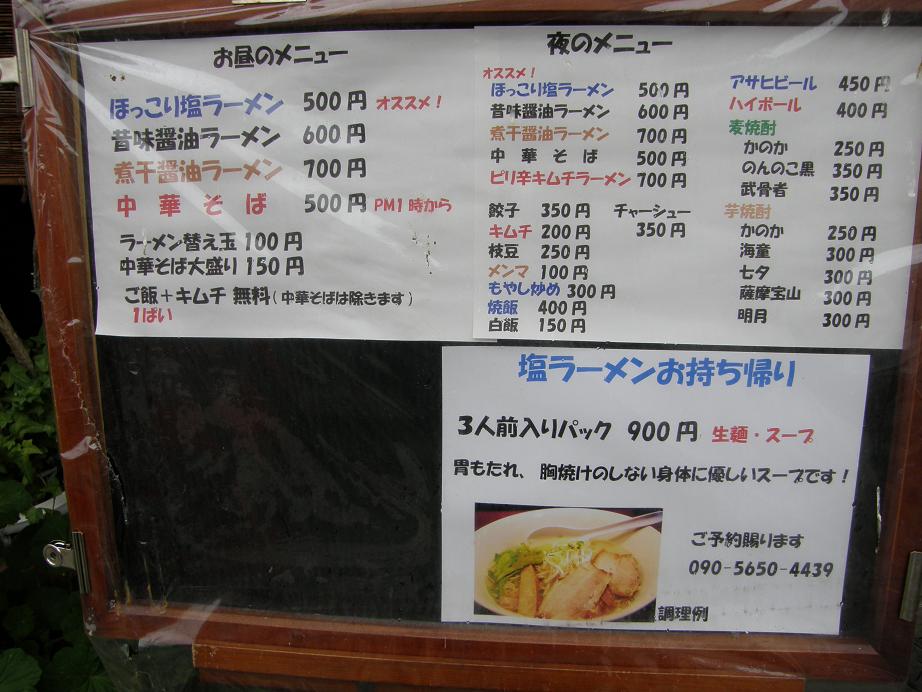 お昼のメニュー
ほっこり塩ラーメン 500円 オススメ！
昔味醤油ラーメン 600円
煮干醤油ラーメン 700円
中華そば 500円 PM1時から
ラーメン替え玉 100円
中華そば大盛り 150円
ご飯＋キムチ 無料(中華そばは除きます)
1ぱい
夜のメニュー
オススメ！
ほっこり塩ラーメン 500円
昔味醤油ラーメン 600円
煮干醤油ラーメン 700円
中華そば 500円
ピリ辛キムチラーメン 700円
餃子 350円
キムチ 200円
枝豆 250円
メンマ 100円
もやし炒め 300円
焼飯 400円
白飯 150円
チャーシュー
350円
アサヒビール 450円
ハイボール 400円
麦焼酎
かのか 250円
のんのこ黒 350円
武骨者 350円
芋焼酎
かのか 250円
海童 300円
七夕 300円
薩摩宝山 300円
明月 300円
塩ラーメンお持ち帰り
3人前入りパック 900円 生麺・スープ
胃もたれ、胸焼けのしない身体に優しいスープです！
ご予約賜ります
090-5650-4439
調理例